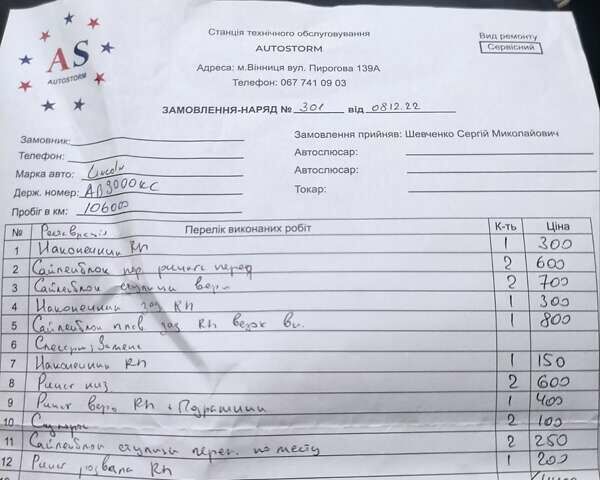 Станція технічного обслуговування
AUTOSTORM
AS
AUTOSTORM
Вид ремонту
Сервісний
Адреса: м.Вінниця вул. Пирогова 139А
Телефон: 067 741 09 03
ЗАМОВЛЕННЯ-НАРЯД № 301 від 08.12.22
Замовник:
Телефон:
Марка авто: Lincoln
Держ. номер: АВ3000КС
Пробіг в км: 106000
Замовлення прийняв: Шевченко Сергій Миколайович
Автослюсар:
Автослюсар:
Токар:
№ Реставрація Перелік виконаних робіт К-ть Ціна
1 Наконечник RH 1 300
2 Сайлентблок пер. рычага перед 2 600
3 Сайлентблок ступицы верх 2 700
4 Наконечник зад RH 1 300
5 Сайлентблок зад RH 1 800
6 Замена
7 Наконечник RH 1 150
8 Рычаг низ 2 600
9 Рычаг верх RH 1 400
10 2 100
11 Сайлентблок ступицы по месту 2 250
12 Рычаг развала RH 1 200